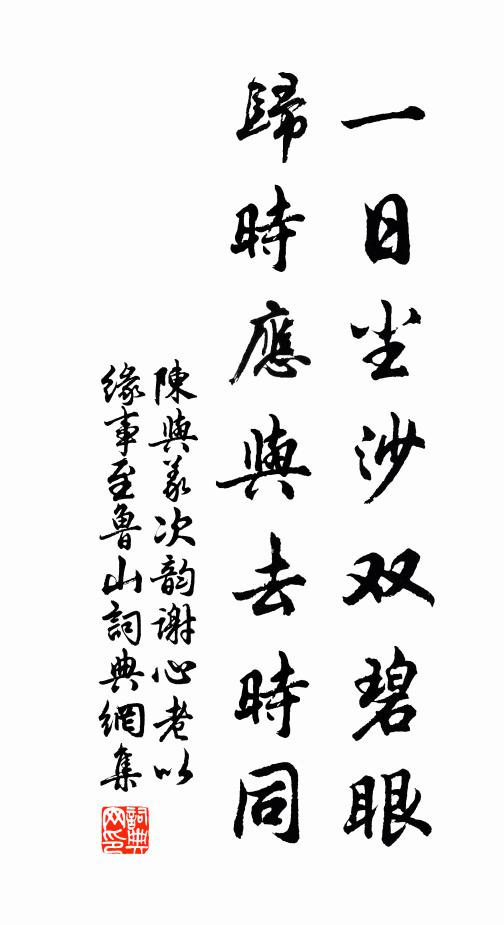 一日尘沙双碧眼
歸時應與去時同
陳與義次韵谢心老以
緣事至魯山詞典網集
詞典
网印